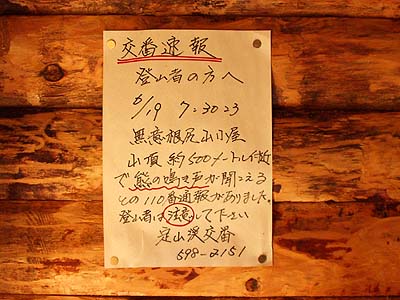 交番速報
登山者の方へ
6/19 7:30ころ
無意根尻山小屋
山頂 約500メートル付近
で熊の鳴き声が聞こえる
との110番通報がありました。
登山者は注意して下さい
定山渓交番
598-2151